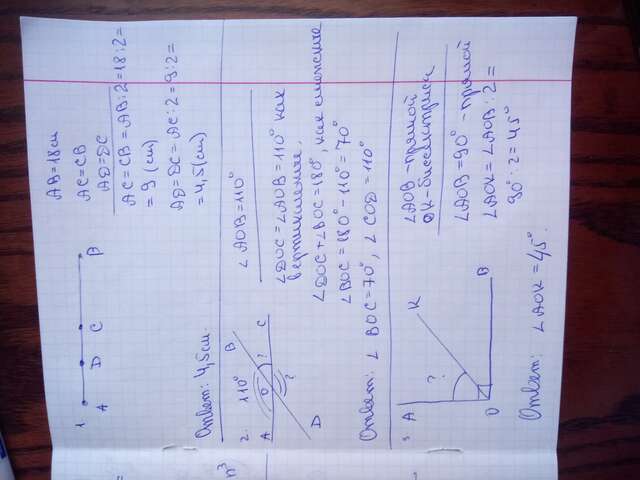 1
A D C B
AB = 18 см
AC = CB
AD = DC
AC = CB = AB : 2 = 18 : 2 =
= 9 (см)
AD = DC = AC : 2 = 9 : 2 =
= 4,5 (см)
Ответ: 4,5 см.
2.
110°
A B O ? C
?
D
∠AOB = 110°
∠DOC = ∠AOB = 110° как
вертикальные.
∠DOC + ∠BOC = 180°, как смежные
∠BOC = 180° - 110° = 70°
Ответ: ∠BOC = 70°, ∠COD = 110°
3
A K
?
O B
∠AOB - прямой
OK - биссектриса
∠AOB = 90° - прямой
∠AOK = ∠AOB : 2 =
90° : 2 = 45°
Ответ: ∠AOK = 45°.
=
м³